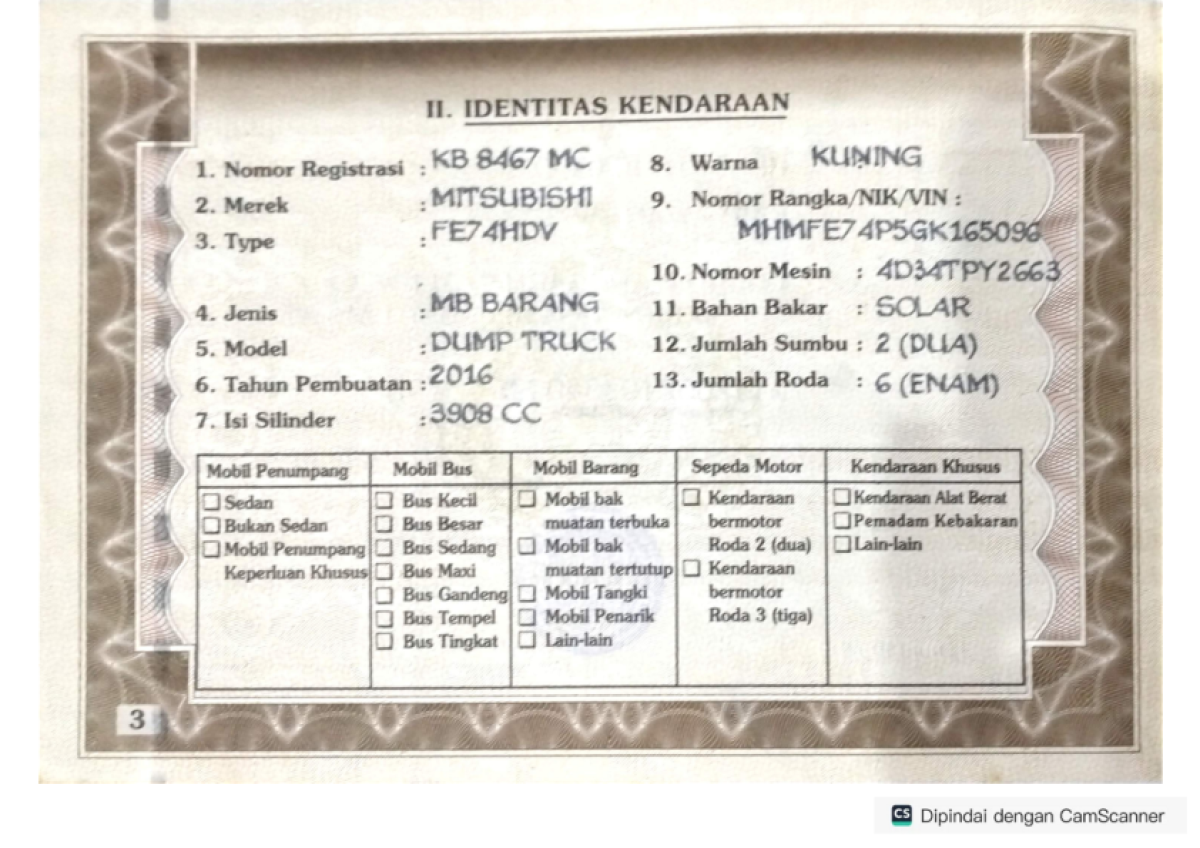 II. IDENTITAS KENDARAAN
1. Nomor Registrasi : KB 8467 MC
2. Merek : MITSUBISHI
3. Type : FE74HDV
4. Jenis : MB BARANG
5. Model : DUMP TRUCK
6. Tahun Pembuatan : 2016
7. Isi Silinder : 3908 CC
8. Warna KUNING
9. Nomor Rangka/NIK/VIN :
MHMFE74P5GK165096
10. Nomor Mesin : 4D34TPY2663
11. Bahan Bakar : SOLAR
12. Jumlah Sumbu : 2 (DUA)
13. Jumlah Roda : 6 (ENAM)
Mobil Penumpang
☐ Sedan
☐ Bukan Sedan
☐ Mobil Penumpang
Keperluan Khusus
Mobil Bus
☐ Bus Kecil
☐ Bus Besar
☐ Bus Sedang
☐ Bus Maxi
☐ Bus Gandeng
☐ Bus Tempel
☐ Bus Tingkat
Mobil Barang
☐ Mobil bak
muatan terbuka
☐ Mobil bak
muatan tertutup
☐ Mobil Tangki
☐ Mobil Penarik
☐ Lain-lain
Sepeda Motor
☐ Kendaraan
bermotor
Roda 2 (dua)
☐ Kendaraan
bermotor
Roda 3 (tiga)
Kendaraan Khusus
☐ Kendaraan Alat Berat
☐ Pemadam Kebakaran
☐ Lain-lain
3
CS Dipindai dengan CamScanner